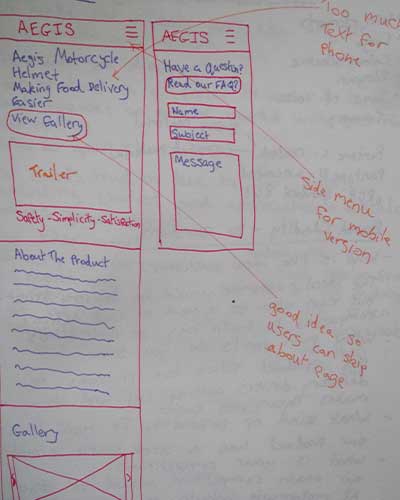 AEGIS
Aegis Motorcycle
Helmet
Making Food Delivery
Easier
View Gallery
Trailer
Safety - Simplicity - Satisfaction
About The Product
Gallery
AEGIS
Have a Question?
Read our FAQ?
Name
Subject
Message
Too much
Text for
Phone
Side menu
for mobile
version
good idea so
users can skip
about page